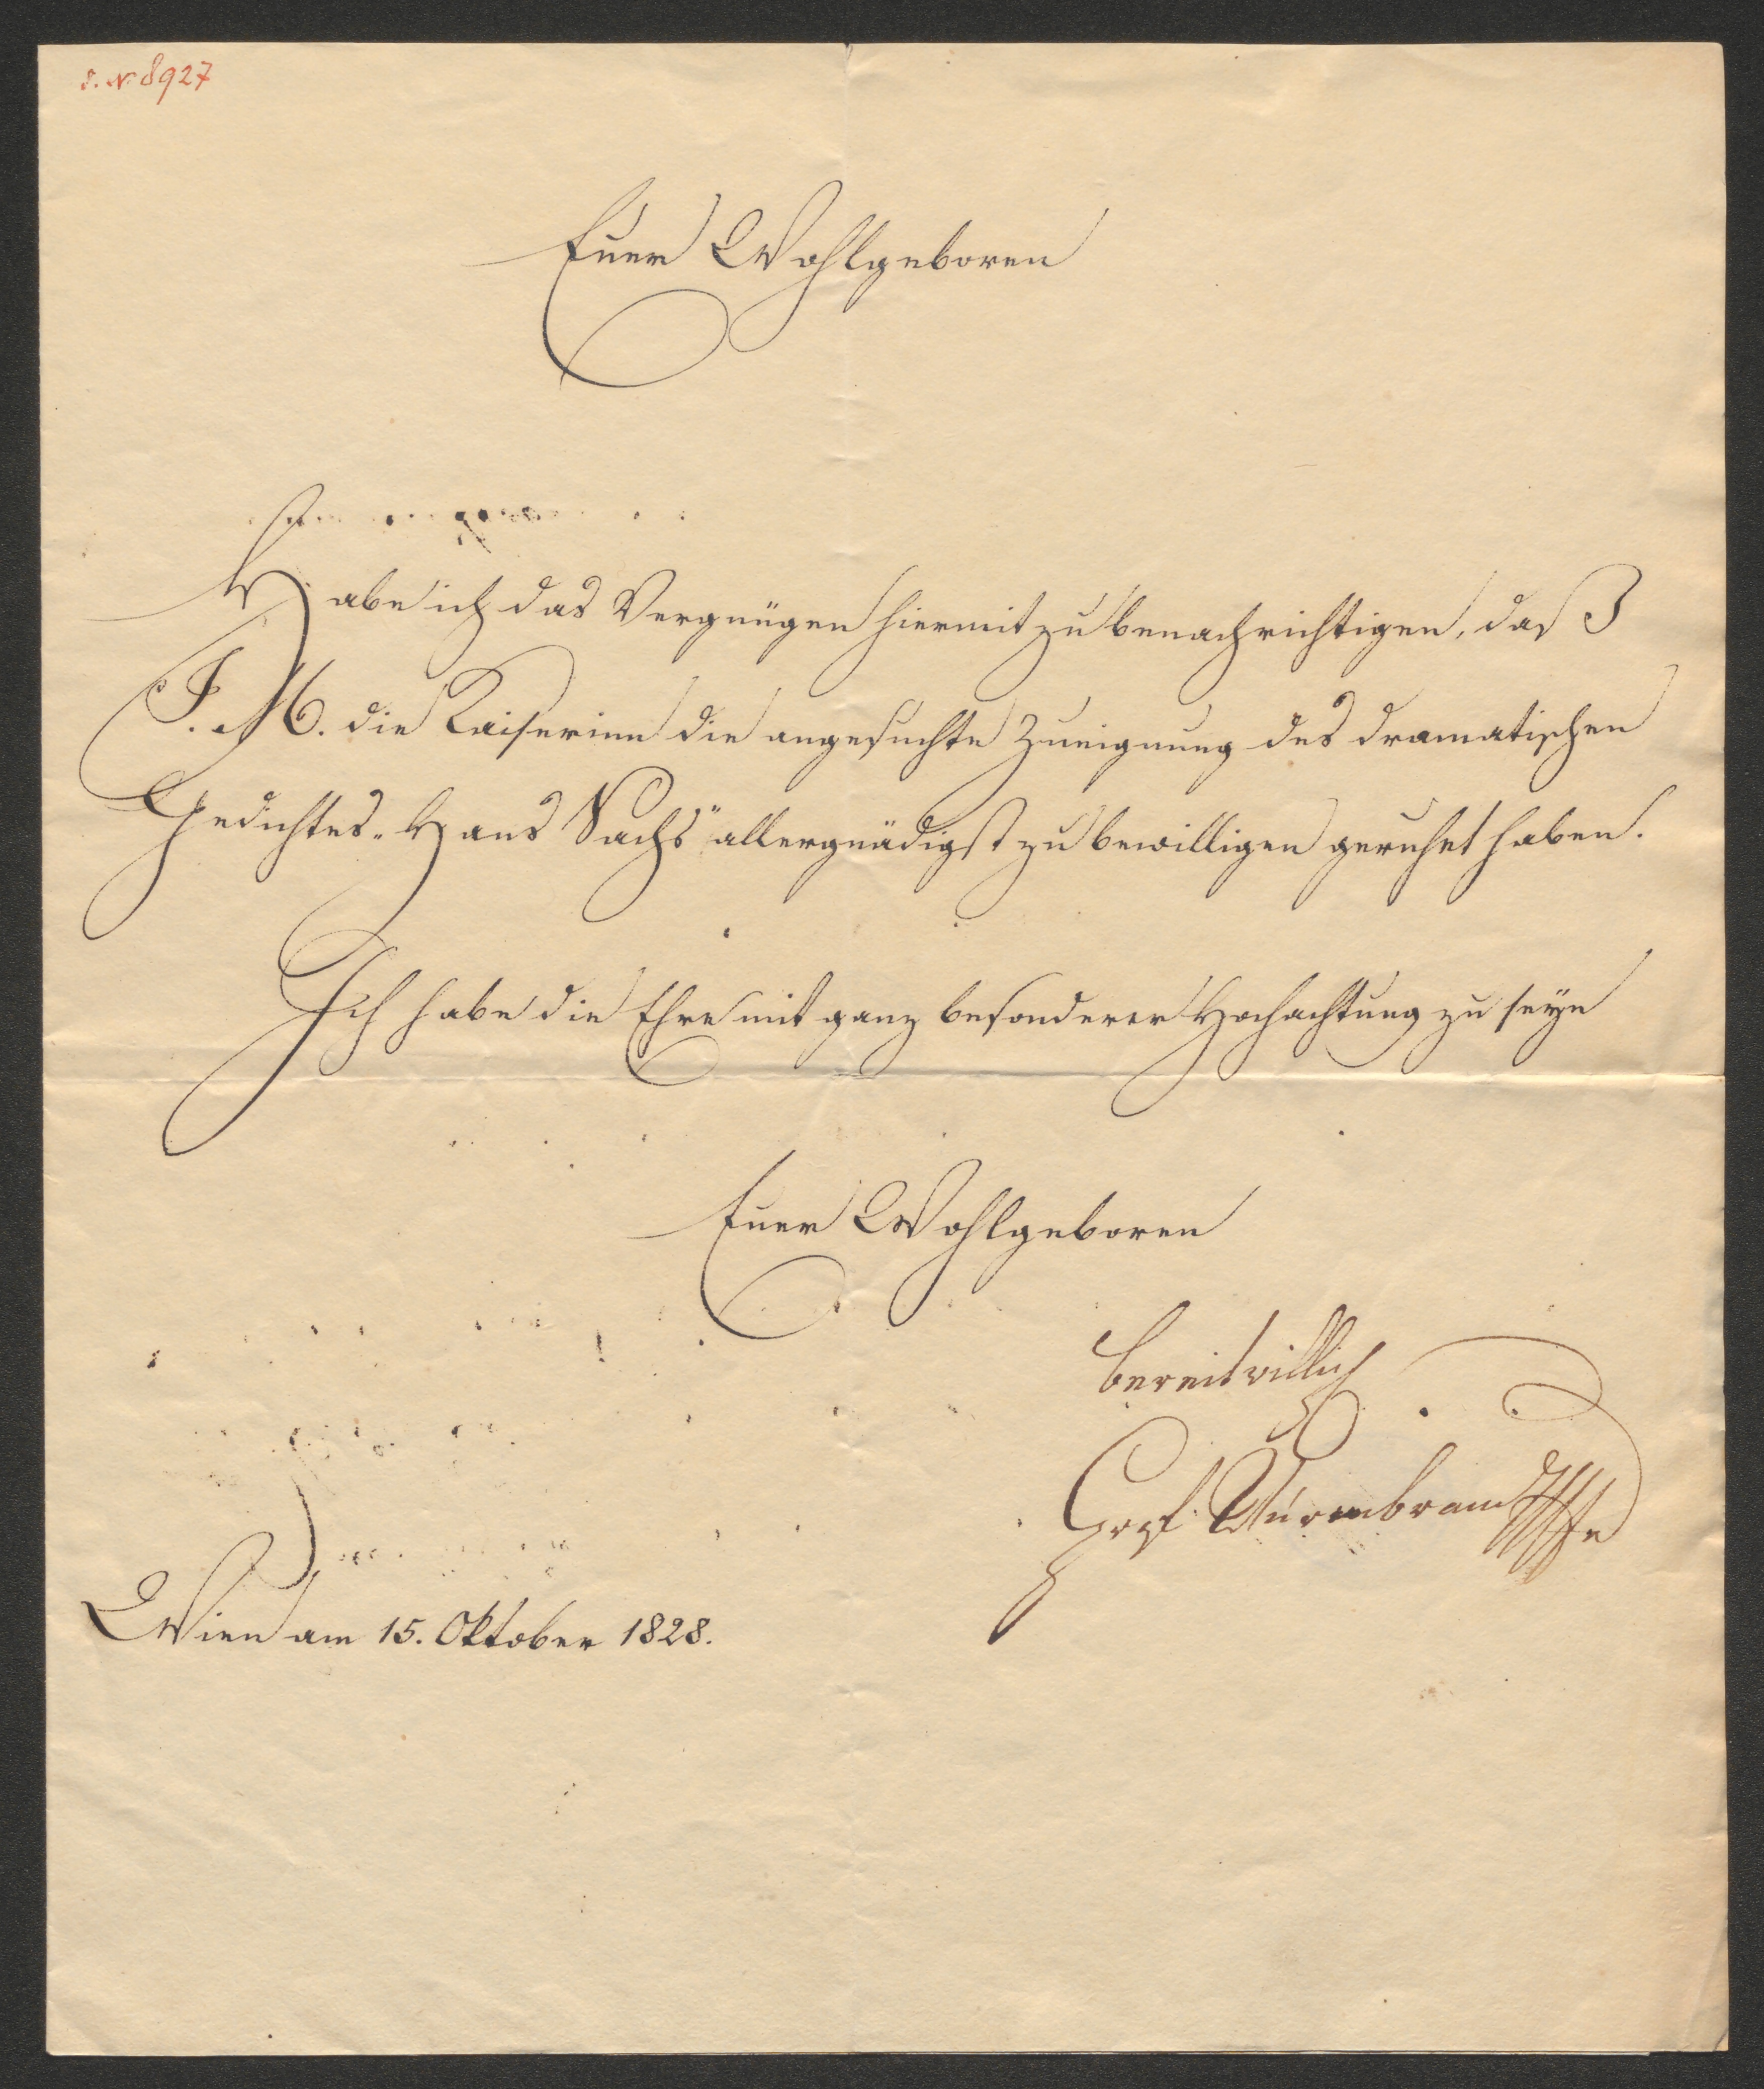 I. N. 8927
Euer Wohlgeboren
Habe ich das Vergnügen hiermit zu benachrichtigen, daß
I. M. die Kaiserinn die angesuchte Zueignung des dramatischen
Gedichtes „Hans Sachs" allergnädigst zu bewilligen geruhet haben.
Ich habe die Ehre mit ganz besonderer Hochachtung zu seyn
Euer Wohlgeboren
bereitwillig
Graf Wurmbrand
Wien am 15. Oktober 1828.